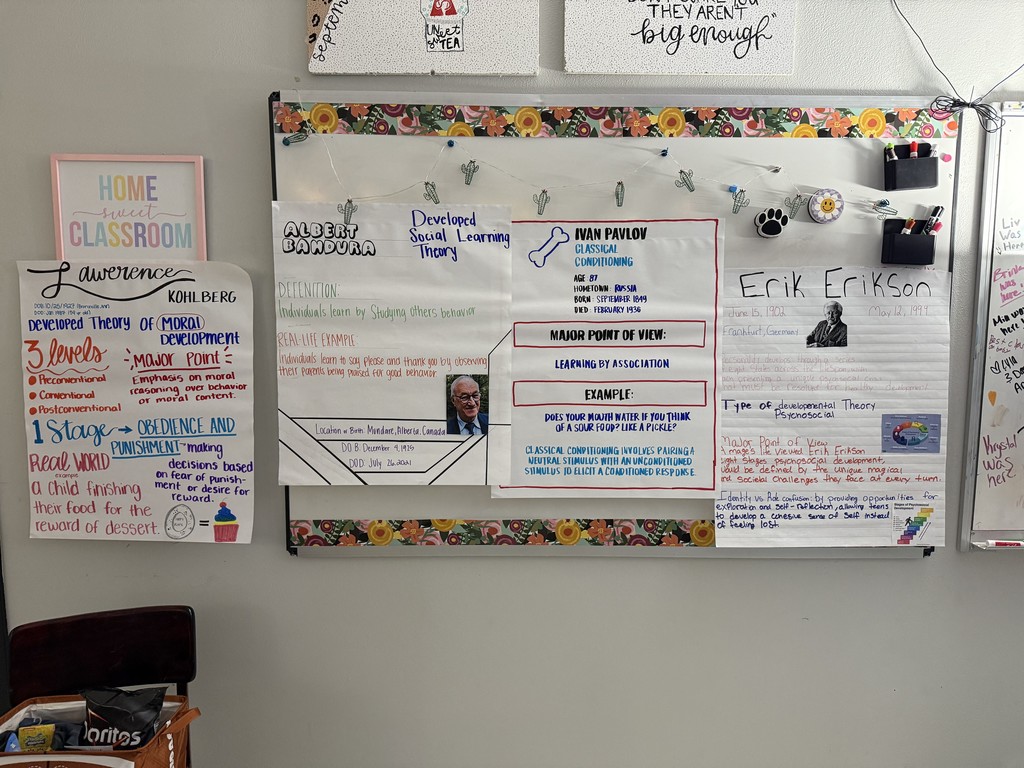 september
sweet
TEA
THEY AREN'T
big enough"
HOME
sweet
CLASSROOM
Lawerence
KOHLBERG
Developed Theory of MORAL
Development
3 levels
Preconventional
Conventional
Postconventional
MAJOR POINT
Emphasis on moral
reasoning over behavior
or moral content.
1 Stage → OBEDIENCE AND
PUNISHMENT - making
decisions based
on fear of punish-
ment or desire for
reward.
Real WORLD
example
a child finishing
their food for the
reward of dessert.
=
ALBERT
BANDURA
Developed
Social Learning
Theory
DEFINITION:
Individuals learn by studying others behavior
REAL-LIFE EXAMPLE
Individuals learn to say please and thank you by observing
their parents being praised for good behavior.
Location of Birth: Mundare, Alberta, Canada
DOB: December 4, 1925
DOD: July 26, 2021
IVAN PAVLOV
CLASSICAL
CONDITIONING
AGE: 87
HOMETOWN: RUSSIA
BORN: SEPTEMBER 1849
DIED: FEBRUARY 1936
MAJOR POINT OF VIEW:
LEARNING BY ASSOCIATION
EXAMPLE:
DOES YOUR MOUTH WATER IF YOU THINK
OF A SOUR FOOD? LIKE A PICKLE?
CLASSICAL CONDITIONING INVOLVES PAIRING A
NEUTRAL STIMULUS WITH AN UNCONDITIONED
STIMULUS TO ELICIT A CONDITIONED RESPONSE.
Erik Erikson
June 15, 1902
May 12, 1994
Frankfurt, Germany
Type of developmental Theory
Psychosocial
Major Point of View
life viewed Erik Erikson
stages psychosocial development
would be defined by the unique
and societal challenges they face at every turn.
Identity vs. Role confusion: by providing opportunities for
exploration and self-reflection, allowing teens
to develop a cohesive sense of self instead
of feeling lost.
Liv
Was
Here
was
here.
Krystal
was
here
Doritos